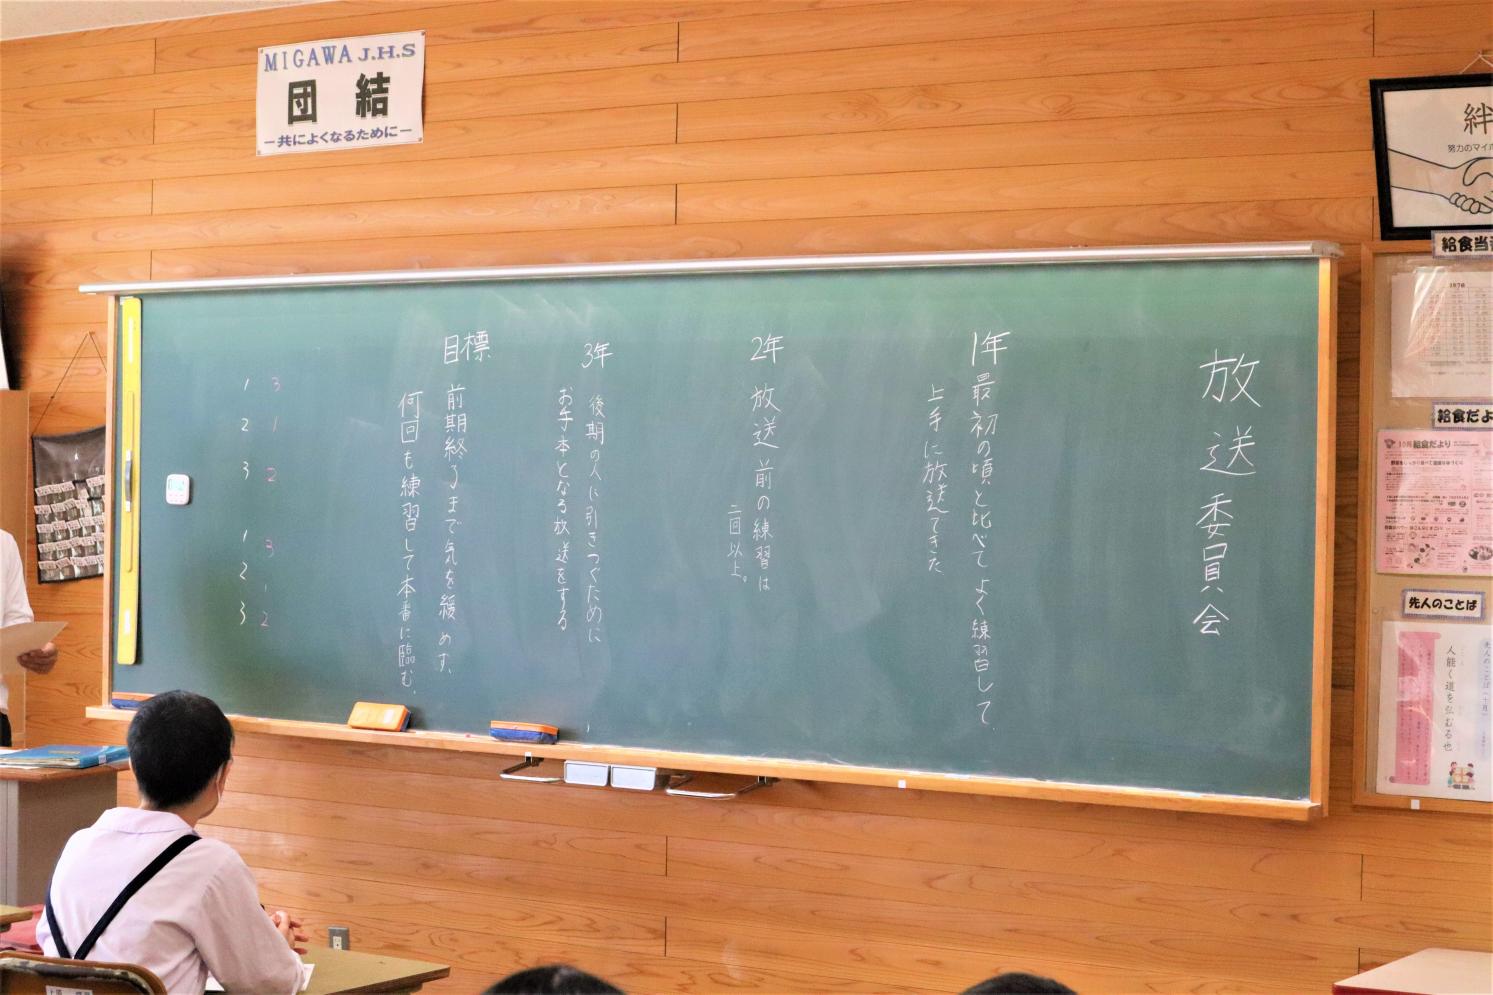 MIGAWA J.H.S
団結
―共によくなるために―
放送委員会
1年 最初の頃と比べてよく練習して
上手に放送できた
2年 放送前の練習は
二回以上。
3年 後期の人に引きつぐために
お手本となる放送をする
目標 前期終るまで気を緩めず、
何回も練習して本番に臨む。
3 1 2 3 1 2
1 2 3 1 2 3
絆
努力のマイ
給食当
1976
給食だよ
10月 給食だより
先人のことば
先人のことば(十月)
人能く道を弘むる也